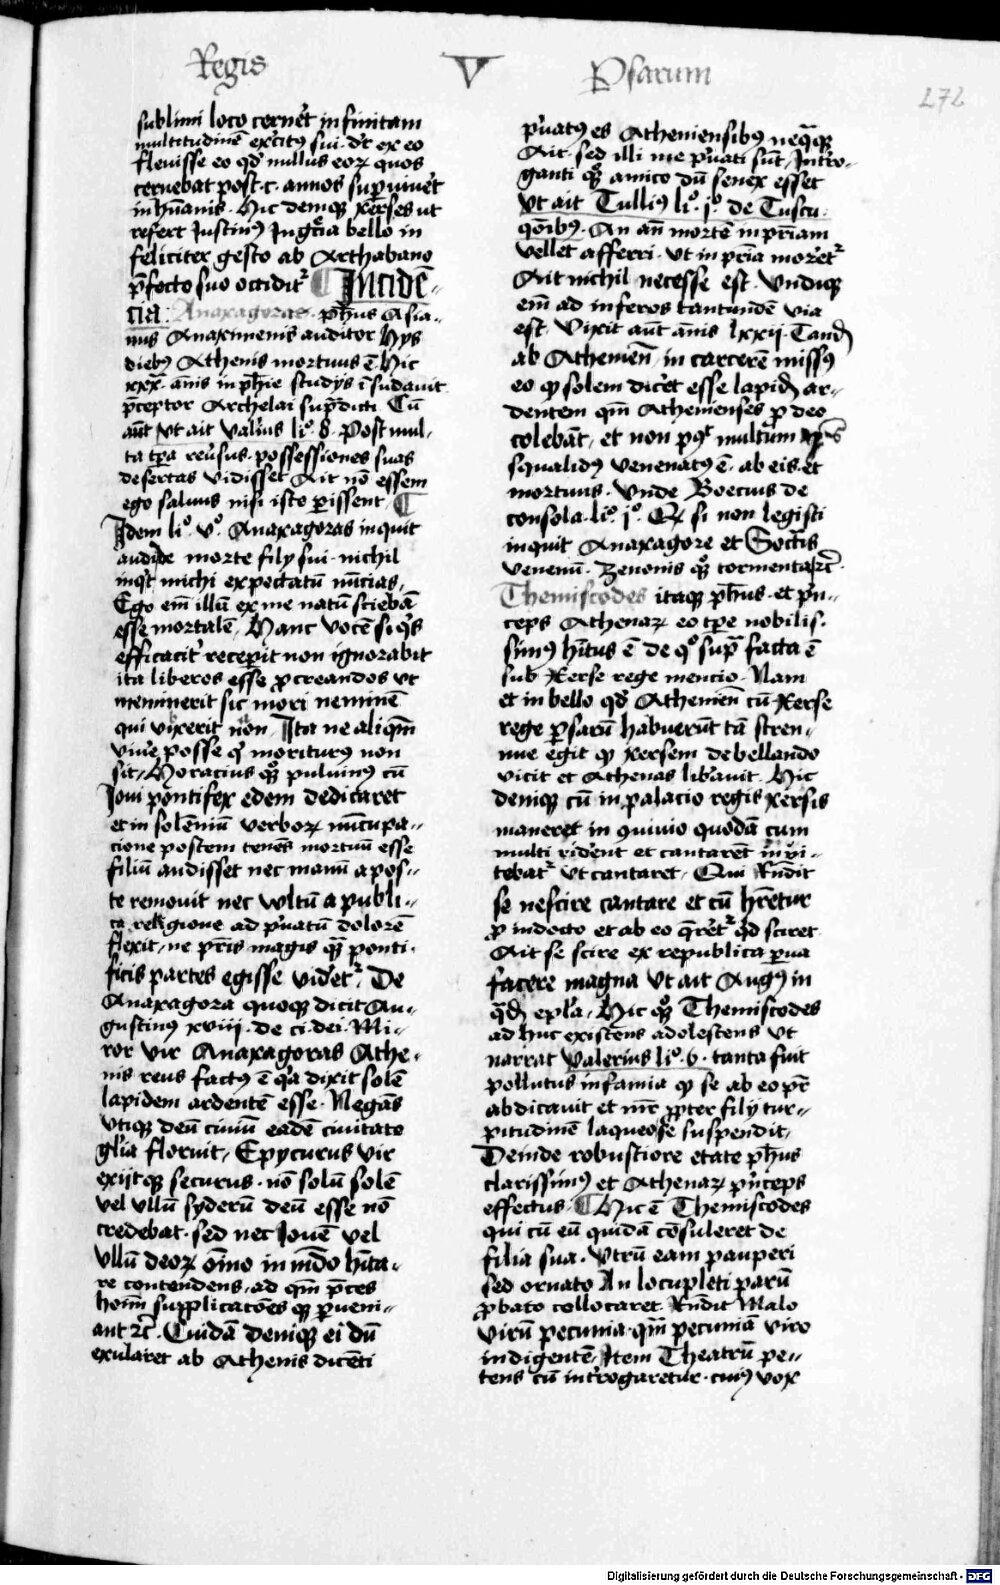 Regis V Psarum
272
sublimi loco cernēt infinitam
multitudinē exc̄itus sui · dr̄ ex eo
flevisse eo qd' nullus eoꝝ quos
cernebat post · c · annos supuiuēt
in hūanis · Hic deniqꝫ xerses ut
refert Justinꝰ Jn gr̄cia bello in
feliciter gesto ab Arthabano
p̄fecto suo occidit᷑ ¶ Jncidē-
cia : Anaxagoras · ph̄us Asia-
nus Anaximenis auditor hys
diebꝰ Athenis mortuus ē Hic
xxx · annis in ph̄ie studys ī sudauit
p̄ceptor Archelai sup̄dicti · Cū
aūt vt ait Valr̄ius li° · 8 · Post mul-
ta tp̄a reūsus · possessiones suas
desertas vidisset Ait nō essem
ego saluus nisi iste ꝑissent ¶
Jdem li° · v° · Anaxagoras inquit
audita de morte fily sui · nichil
inqt michi expectatū nūcias,
Ego em̄ illū ex me natū sciebā
esse mortalē, Hanc vocē si qs
efficacit᷑ receperit non ignorabit
ita liberos esse ꝓcreandos vt
meminerit sic mori neminē
qui vixerit non Jta ne aliqm̄
viue posse q' moriturꝰ non
sit, Horacius qꝫ puluinꝰ cū
Joui pontifex edem dedicaret
et in solēniū verboꝝ nūcupa-
cione postem tenēs mortuū esse
filiū audisset nec manū a pos-
te remouit nec vultū a publi-
ca religione ad p̄uatū dolorē
flexit, ne pr̄is magis qꝫ ponti-
ficis partes egisse videt᷑ · De
Anaxagora quoqꝫ dicit Au-
gustinꝰ xviij · de ci · dei · Mi-
ror vir Anaxagoras Athe-
nis reus factꝰ ē qa dixit solē
lapidem ardentē esse · Negās
vtiqꝫ deū ciuiū eadē ciuitate
gl'ia floruit, Epycurus vir
exijtqꝫ securus · nō solū solē
vel vllū syderū deū esse nō
credebat · sed nec Jouē vel
vllū deoꝝ oīno in mūdo hīta-
re contendens, ad qm̄ p̄ces
hoīm supplicacōes qꝫ pueni-
ant ꝛc̄ · Cuidā deniqꝫ ei dū
exularet ab Athenis dicēti
p̄uatꝰ es Atheniensibꝰ neqꝫ
Ait · sed illi me p̄uati sūt, Jntro-
ganti qꝫ amico dū senex esset
vt ait Tullius li° · j° · de Tuscu ·
qōibꝰ · An aū mortē in pr̄iam
vellet afferri · vt in pr̄ia moret᷑
Ait nichil necesse est · vndiqꝫ
em̄ ad inferos tantundē via
est · Vixit aūt ānis lxxij · Tandē
ab Atheniēn in carcerē missꝰ
eo qꝫ solem dicēt esse lapidē ar-
dentem qm̄ Athenienses ꝓ deo
colebāt, et non post multum tp̄s
squalidꝰ venenatꝰ ē · ab eis · et
mortuus · Vnde Boecius de
consola · li° · j° · Qꝫ si non legisti
inquit Anaxagore et Socratis
venenū · Zenonis qꝫ tormenta ꝛc̄ ·
Themiscodes itaqꝫ ph̄us · et p̄n-
ceps Athenaꝝ eo tp̄e nobilis-
simꝰ hītus ē de qo sup̄ facta ē
sub Xerse rege mencio · Nam
et in bello qd' Atheniēn cū Xerse
rege psarū habuerūt tā stren-
nue egit qꝫ xersem debellando
vicit et Athenas lib'auit · Hic
deniqꝫ cū in palacio regis xersis
maneret in quiuio quodā cum
multi ridēnt et cantarēt invi-
tebat᷑ vt cantaret, Qui Rn̄dit
se nescire cantare et cū hr̄etur
ꝓ indocto et ab eo qr̄et᷑ qd sciret
Ait se scire ex republica parua
facere magna vt ait Augꝰ in
qdā epl'a, Hic qꝫ Themiscodes
ad huc existens adolescens vt
narrat Valerius li° · 6 · tanta fuit
pollutus infamia qꝫ se ab eo pr̄
abdicauit et mr̄ ꝓpter fily tur-
pitudinē laqueo se suspendit,
Deinde robustiore etate ph̄us
clarissimꝰ et Athenaꝝ p̄nceps
effectus · ¶ Hic ē Themiscodes
qui cū eū quidā cōsuleret de
filia sua · Vtrū eam pauperi
sed ornato An locupleti parū
ꝓbato collocaret · Rn̄dit Malo
virū pecunia · qm̄ pecuniā viro
indigentē, Jtem Theatrū pe-
tens cū introgaretur · cuiꝰ vox
Digitalisierung gefördert durch die Deutsche Forschungsgemeinschaft - DFG